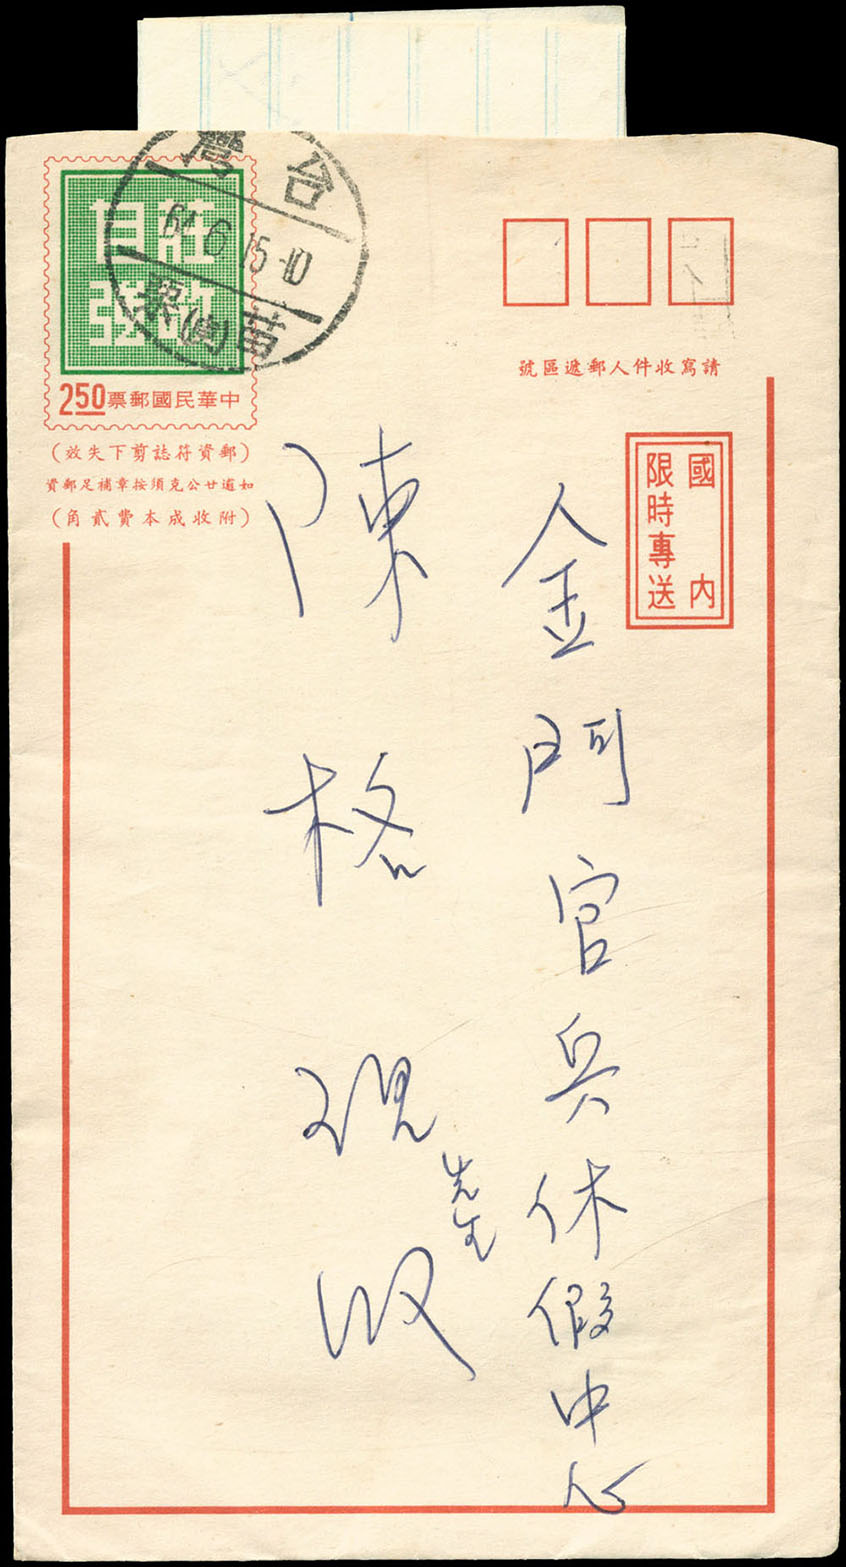 台灣
64.6.15.-10
苗栗
莊敬
自強
中華民國郵票
2.50
(郵資符誌剪下失效)
如逾廿公克須按章補足郵資
(附收成本費貳角)
請寫收件人郵遞區號
國內
限時專送
金門官兵休假中心
陳格現先生收